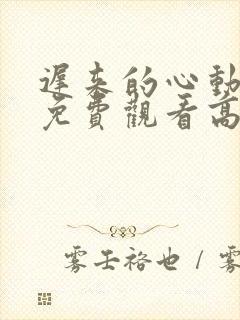 遲來的心動
免費觀看高
霧壬裕也 / 霧